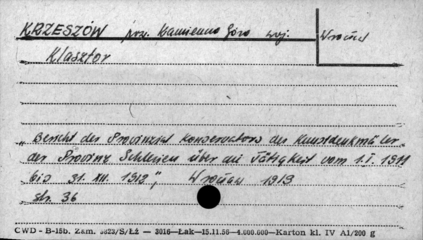 KRZESZÓW pow. Kamienna Góra woj. Wrocław
Klasztor
"Bericht des Provinzial Konservators der Kunstdenkmäler
der Provinz Schlesien über die Tätigkeit vom 1.I. 1911
bis 31. XII. 1912", Wrocław 1913
str. 36
CWD - B-15b. Zam. 3823/S/Łż — 3016—Łak—15.11.56—4.000.000—Karton kl. IV A1/200 g